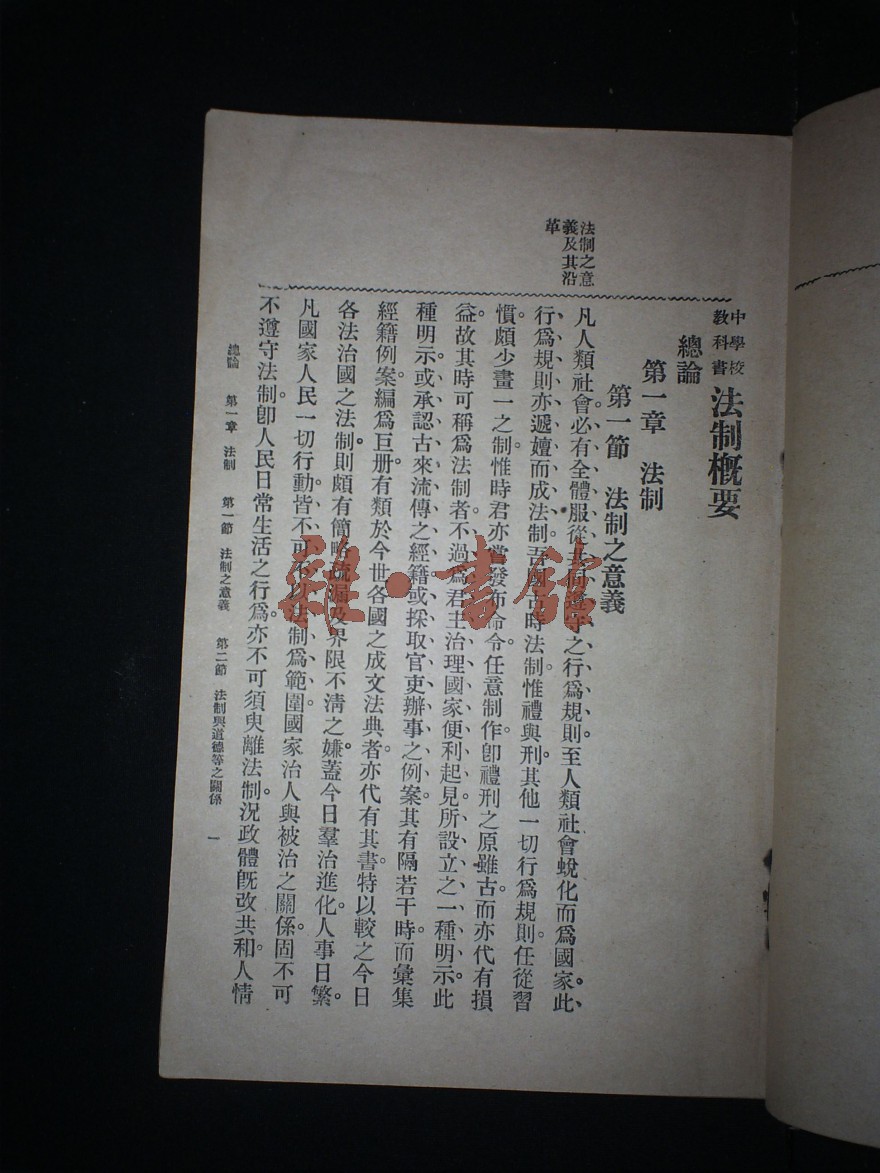 中學校
教科書
法制概要
總論
第一章 法制
第一節 法制之意義
法制之意
義及其沿
革
凡人類社會必有全體服從共同遵守之行爲規則。至人類社會蛻化而爲國家。此
行爲規則亦遞嬗而成法制。吾國古時法制惟禮與刑。其他一切行爲規則任從習
慣。頗少畫一之制。惟時君亦嘗發布命令。任意制作。卽禮刑之原雖古。而亦代有損
益。故其時可稱爲法制者。不過爲君主治理國家便利起見所設立之一種明示。此
種明示。或承認古來流傳之經籍。或採取官吏辦事之例案。其有隔若干時。而彙集
經籍例案。編爲巨册。有類於今世各國之成文法典者。亦代有其書。特以較之今日
各法治國之法制。則頗有簡略疏漏及界限不淸之嫌。蓋今日羣治進化。人事日繁。
凡國家人民一切行動。皆不可不以法制爲範圍。國家治人與被治之關係。固不可
不遵守法制。卽人民日常生活之行爲。亦不可須臾離法制。況政體旣改共和。人情
總論 第一章 法制 第一節 法制之意義 第二節 法制與道德等之關係 一
雜·書館